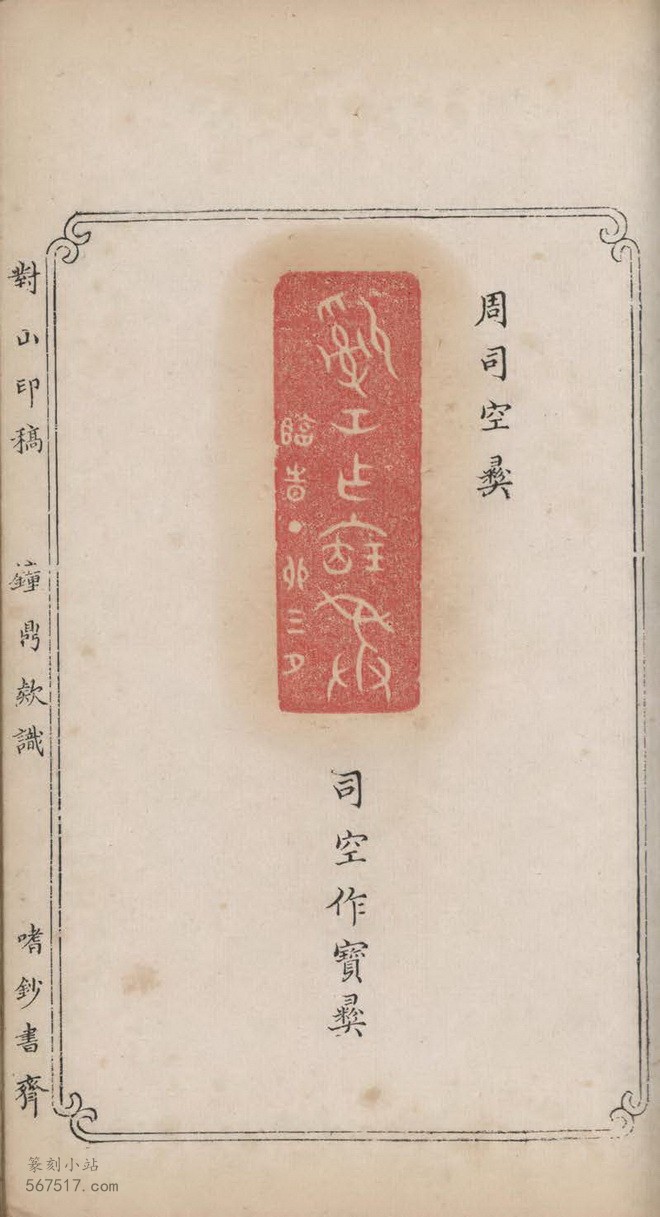 周司空彝
司工乍寶彝
司空作寶彝
對山印稿 鐘鼎欵識 嗜鈔書齋
篆刻小站
567517.com